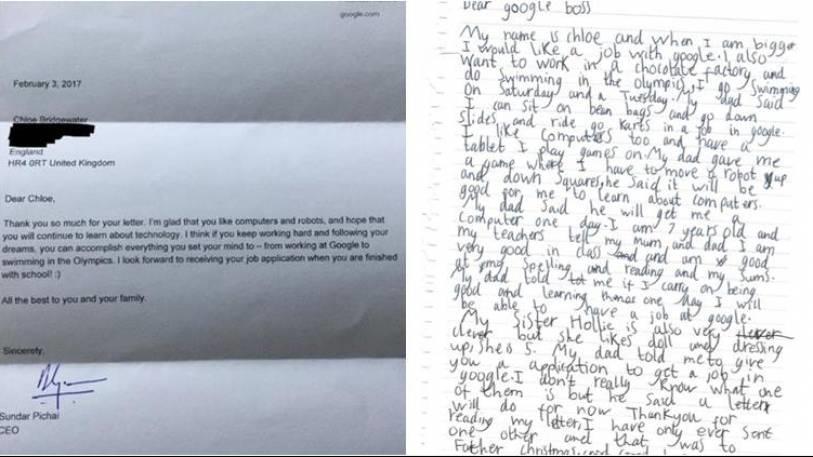 google.com
February 3, 2017
Chloe Bridgewater
England
HR4 0RT United Kingdom
Dear Chloe,
Thank you so much for your letter. I'm glad that you like computers and robots, and hope that
you will continue to learn about technology. I think if you keep working hard and following your
dreams, you can accomplish everything you set your mind to -- from working at Google to
swimming in the Olympics. I look forward to receiving your job application when you are finished
with school! :)
All the best to you and your family.
Sincerely,
Sundar Pichai
CEO
Dear google boss
My name is chloe and when I am bigger
I would like a job with google. I also
want to work in a chocolate factory and
do swimming in the olympics. I go swimming
on Saturday and a Tuesday. My dad said
I can sit on bean bags and go down
slides and ride go karts in a job in google.
I like computers too and have a
tablet I play games on. My dad gave me
a game where I have to move a robot up
and down squares, he said it will be
good for me to learn about computers.
My dad said he will get me a
computer one day. I am 7 years old and
my teachers tell my mum and dad I am
very good in class and am good
at my spelling and reading and my sums.
My dad told me if I carry on being
good and learning things one day I will
be able to have a job at google.
My sister Hollie is also very clever
clever but she likes doll and dressing
up, she is 5. My dad told me to give
you a application to get a job in
google. I don't really know what one
of them is but he said a letter
will do for now Thankyou for
reading my letter, I have only ever sent
one other and that was to
Father christmas.